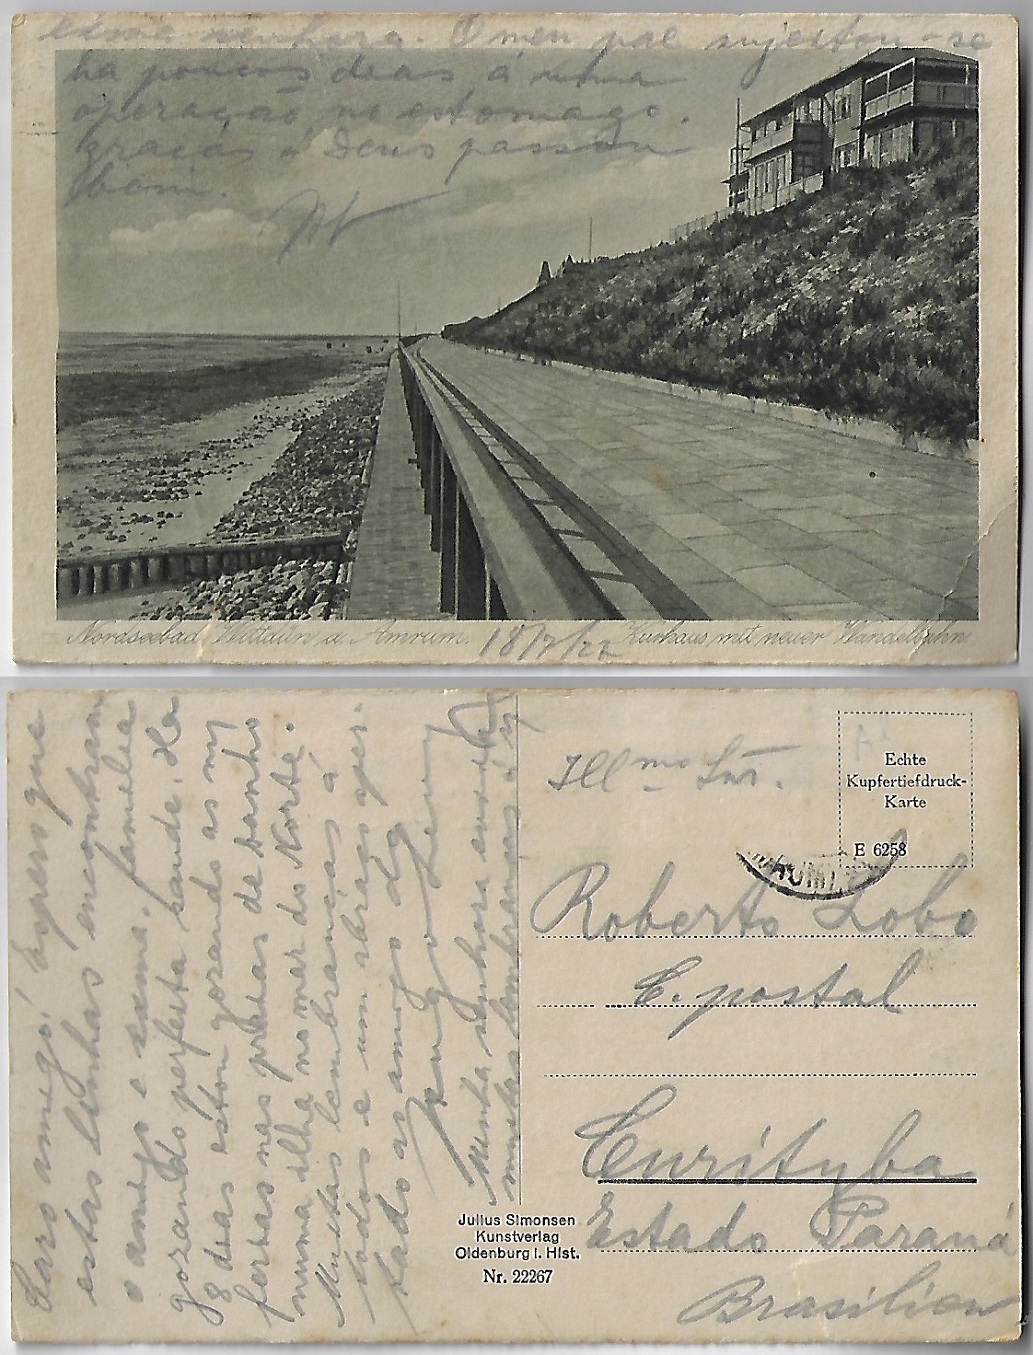 exma senhora. O meu pae sujeitou-se
ha poucos dias á uma
operação no estomago.
graças á Deus passou
bem.
Nordseebad Wittdün a. Amrum.
18/7/27
Kurhaus mit neuer Wandelbahn.
Caro amigo! Espero que
estas linhas encontram
o amigo e exma. familia
gozando perfeita saude. Ha
8 dias estou gozando as m
ferias nas praias de banho
numa ilha no mar do Norte.
Muitas lembranças á
todos e um abraço aper-
tado ao amigo do
Minha senhora envia
muitas lembranças á
Illmo Snr.
Echte
Kupfertiefdruck-
Karte
E 6258
Roberto Lobo
C. postal
Curityba
Estado Paraná
Brasilien
Julius Simonsen
Kunstverlag
Oldenburg i. Hlst.
Nr. 22267